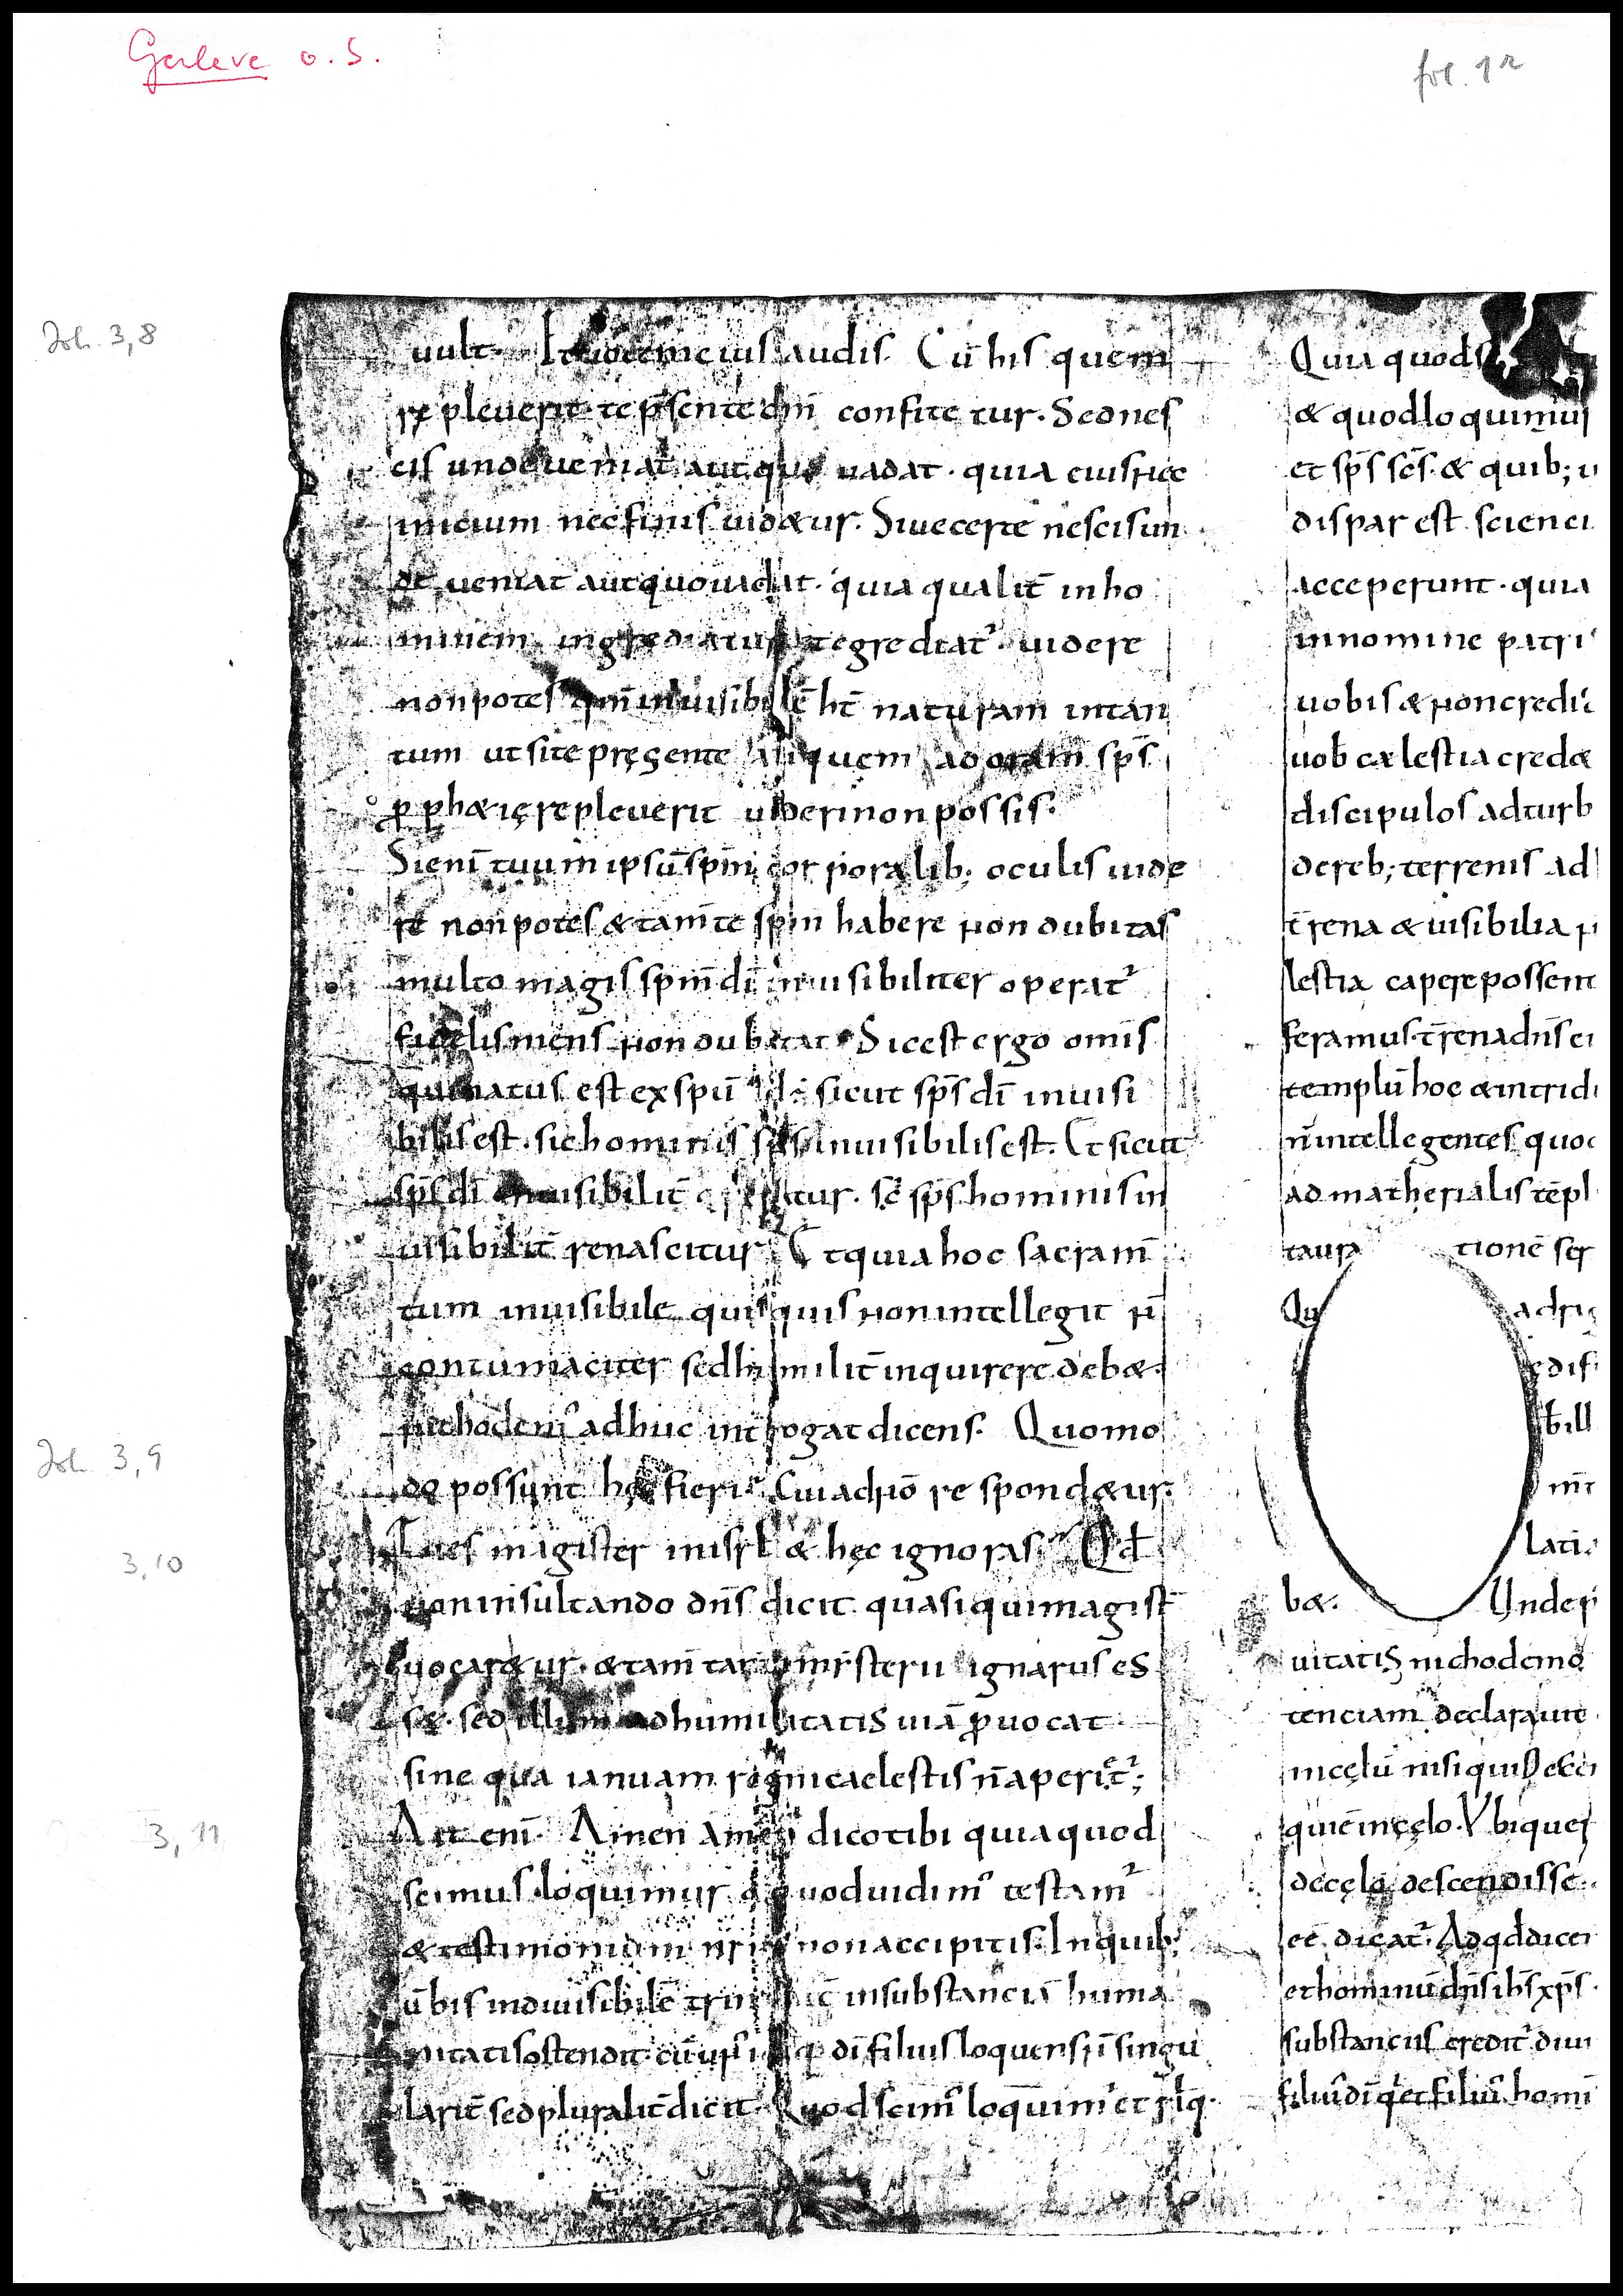 Gerleve o. S.
fol. 1r
Joh. 3,8
uult. Et uocem eius audis. Cū his quem
repleuerit te p̄sente dm̄ confitetur. Sed nes
cis unde ueniat aut quo uadat. quia eius nec
inicium nec finis uid&ur. Siue certe nescis un
de ueniat aut quo uadat. quia qualit̄ in ho
minem ingrediatur et egrediat᷒. uidere
non potes qm̄ inuisibilē ht̄ naturam intan
tum ut si te pręsente aliquem ad oram sp̄s
p̄ph&ię repleuerit uideri non possis.
Si enī tuum ipsū sp̄m corporalib; oculis uide
re non potes & tam̄ te sp̄m habere non dubitas
multo magis sp̄m dī inuisibiliter operat᷒
fidelis mens non dubitat. Sic est ergo om̄is
qui natus est ex spū dī. sicut sp̄s dī inuisi
bilis est. sic hominis sp̄s inuisibilis est. Et sicut
sp̄s dī inuisibilit̄ operatur. sic sp̄s hominis in
uisibilit̄ renascitur. Et quia hoc sacram̄
tum inuisibile quisquis non intellegit n̄
contumaciter sed humilit̄ inquirere deb&.
Joh. 3,9
nichodem᷒ adhuc int̄rogat dicens. Quomo
do possunt hęc fieri. Cui ad hō respond&ur.
3,10
Tu es magister in isrl̄ & hęc ignoras. Qd̄
non insultando dn̄s dicit quasi qui magist̄
uocar&ur. & tam̄ tanti misterii ignarus es
s&. sed illum ad humilitatis uiā p̄uocat
sine qua ianuam regni caelestis n̄ aperit᷒;
3,11
Ait enī. Amen amen dico tibi quia quod
scimus loquimur & quod uidim᷒ testam᷒
& testimonium nr̄m non accipitis. In quib;
ūbis indiuisibilē trinitat̄ in substanciā huma
nitatis ostendit. cū un᷒ idēq; dī filius loquens n̄ singu
larit̄ sed pluralit̄ dicit. Quod scim᷒ loquim᷒ et rl̄q.
Quia quod s
& quod loquimur
et sp̄s sc̄s. & quib; u
dispar est scienci
acceperunt. quia
in nomine patri
uobis & non credi
uob̄ caelestia cred&
discipulos ad turb
de reb; terrenis ad
t̄rena & uisibilia n
lestia capere possent
feramus. t̄rena dn̄s ei
templū hoc & in trid
n̄ intellegentes quod
ad matherialis tēpl
taura tionē ser
Qu adrig
edifi
b ill
m̄
lati
b&. Unde p
uitatis nichodemo
tenciam declaraui te
in cęlū nisi qui de cę
qui ē in cęlo. Ubi quer
de cęlo descendisse.
ee dicat᷒. Ad qd̄ dicen
et hominū dn̄s ih̄s xp̄s.
substanciis credit᷒ diui
filiū dī qi et filiū homi